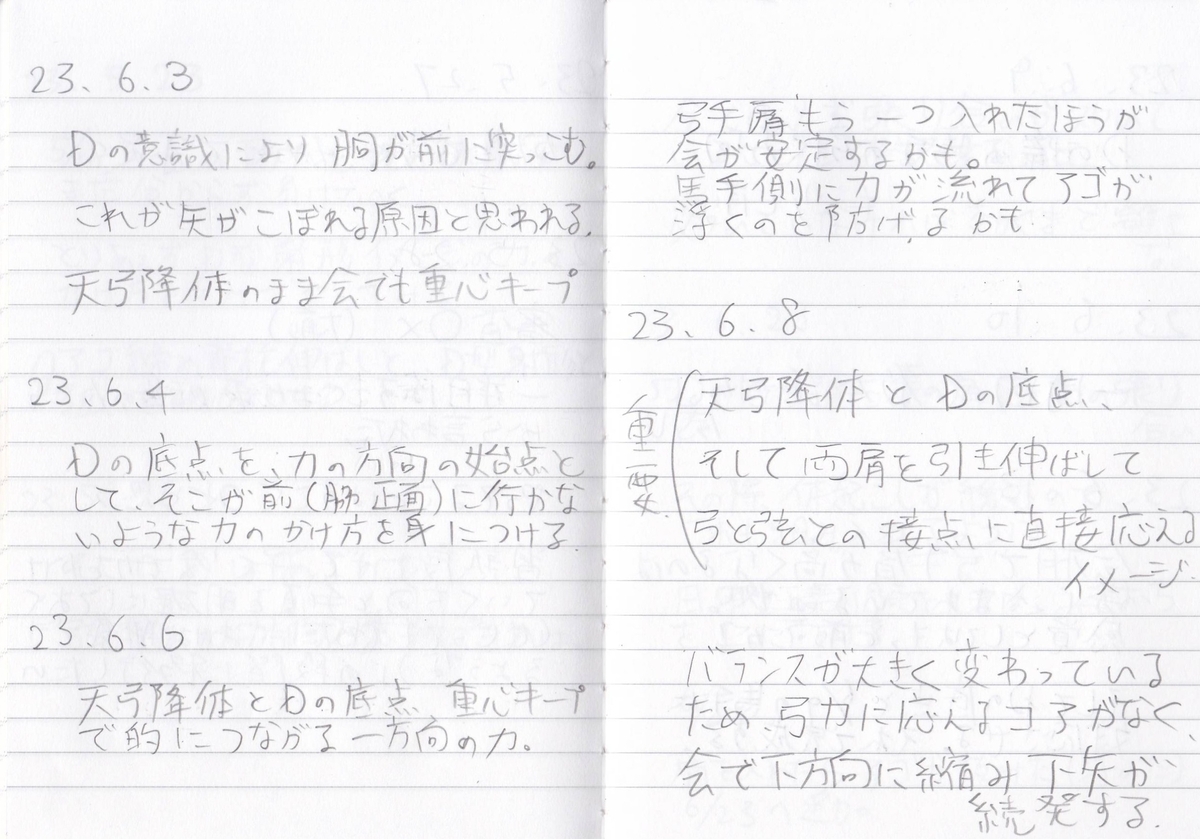 23.6.3
Đの意識により胸が前に突っこむ。
これが矢がこぼれる原因と思われる。
天弓降体のまま会でも重心キープ
23.6.4
Đの底点を、力の方向の始点と
して、そこが前(脇正面)に行かな
いような力のかけ方を身につける。
23.6.6
天弓降体とĐの底点、重心キープ
で的につながる一方向の力。
弓手肩もう一つ入れたほうが
会が安定するかも。
馬手側に力が流れてアゴが
浮くのを防げるかも
23.6.8
重要
天弓降体とĐの底点、
そして両肩を引き伸ばして
弓と弦との接点に直接応える
イメージ
バランスが大きく変わっている
ため、弓力に応えるコアがなく、
会で下方向に縮み下矢が
続発する。